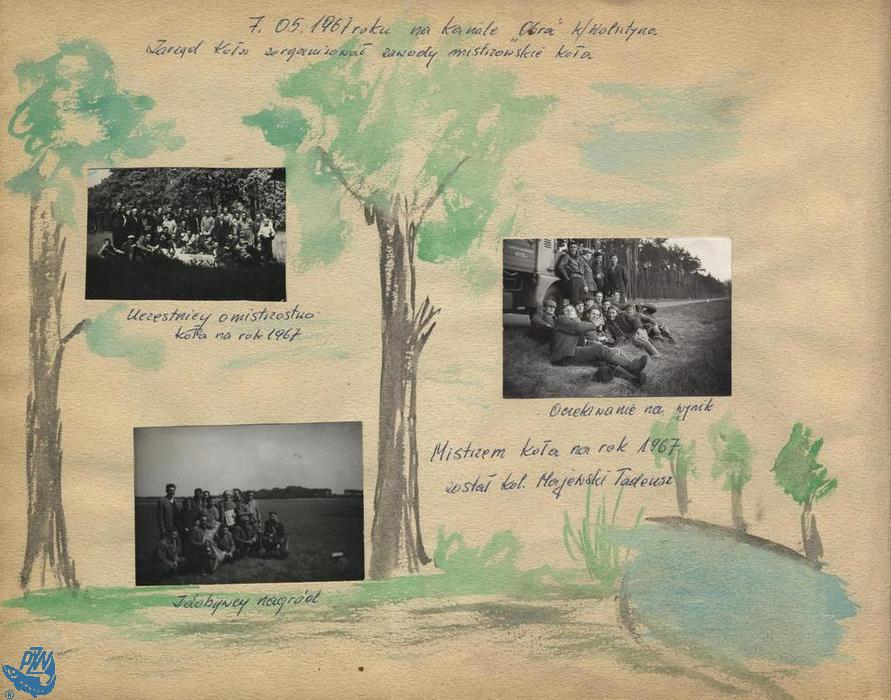 7. 05. 1967 roku na kanale "Obra" k/Wolsztyna
Zarząd Koła zorganizował zawody mistrzowskie koła
Uczestnicy o mistrzostwo
koła na rok 1967
Oczekiwanie na wynik
Mistrzem koła na rok 1967
został kol. Majewski Tadeusz
Zdobywcy nagród
PZW
®